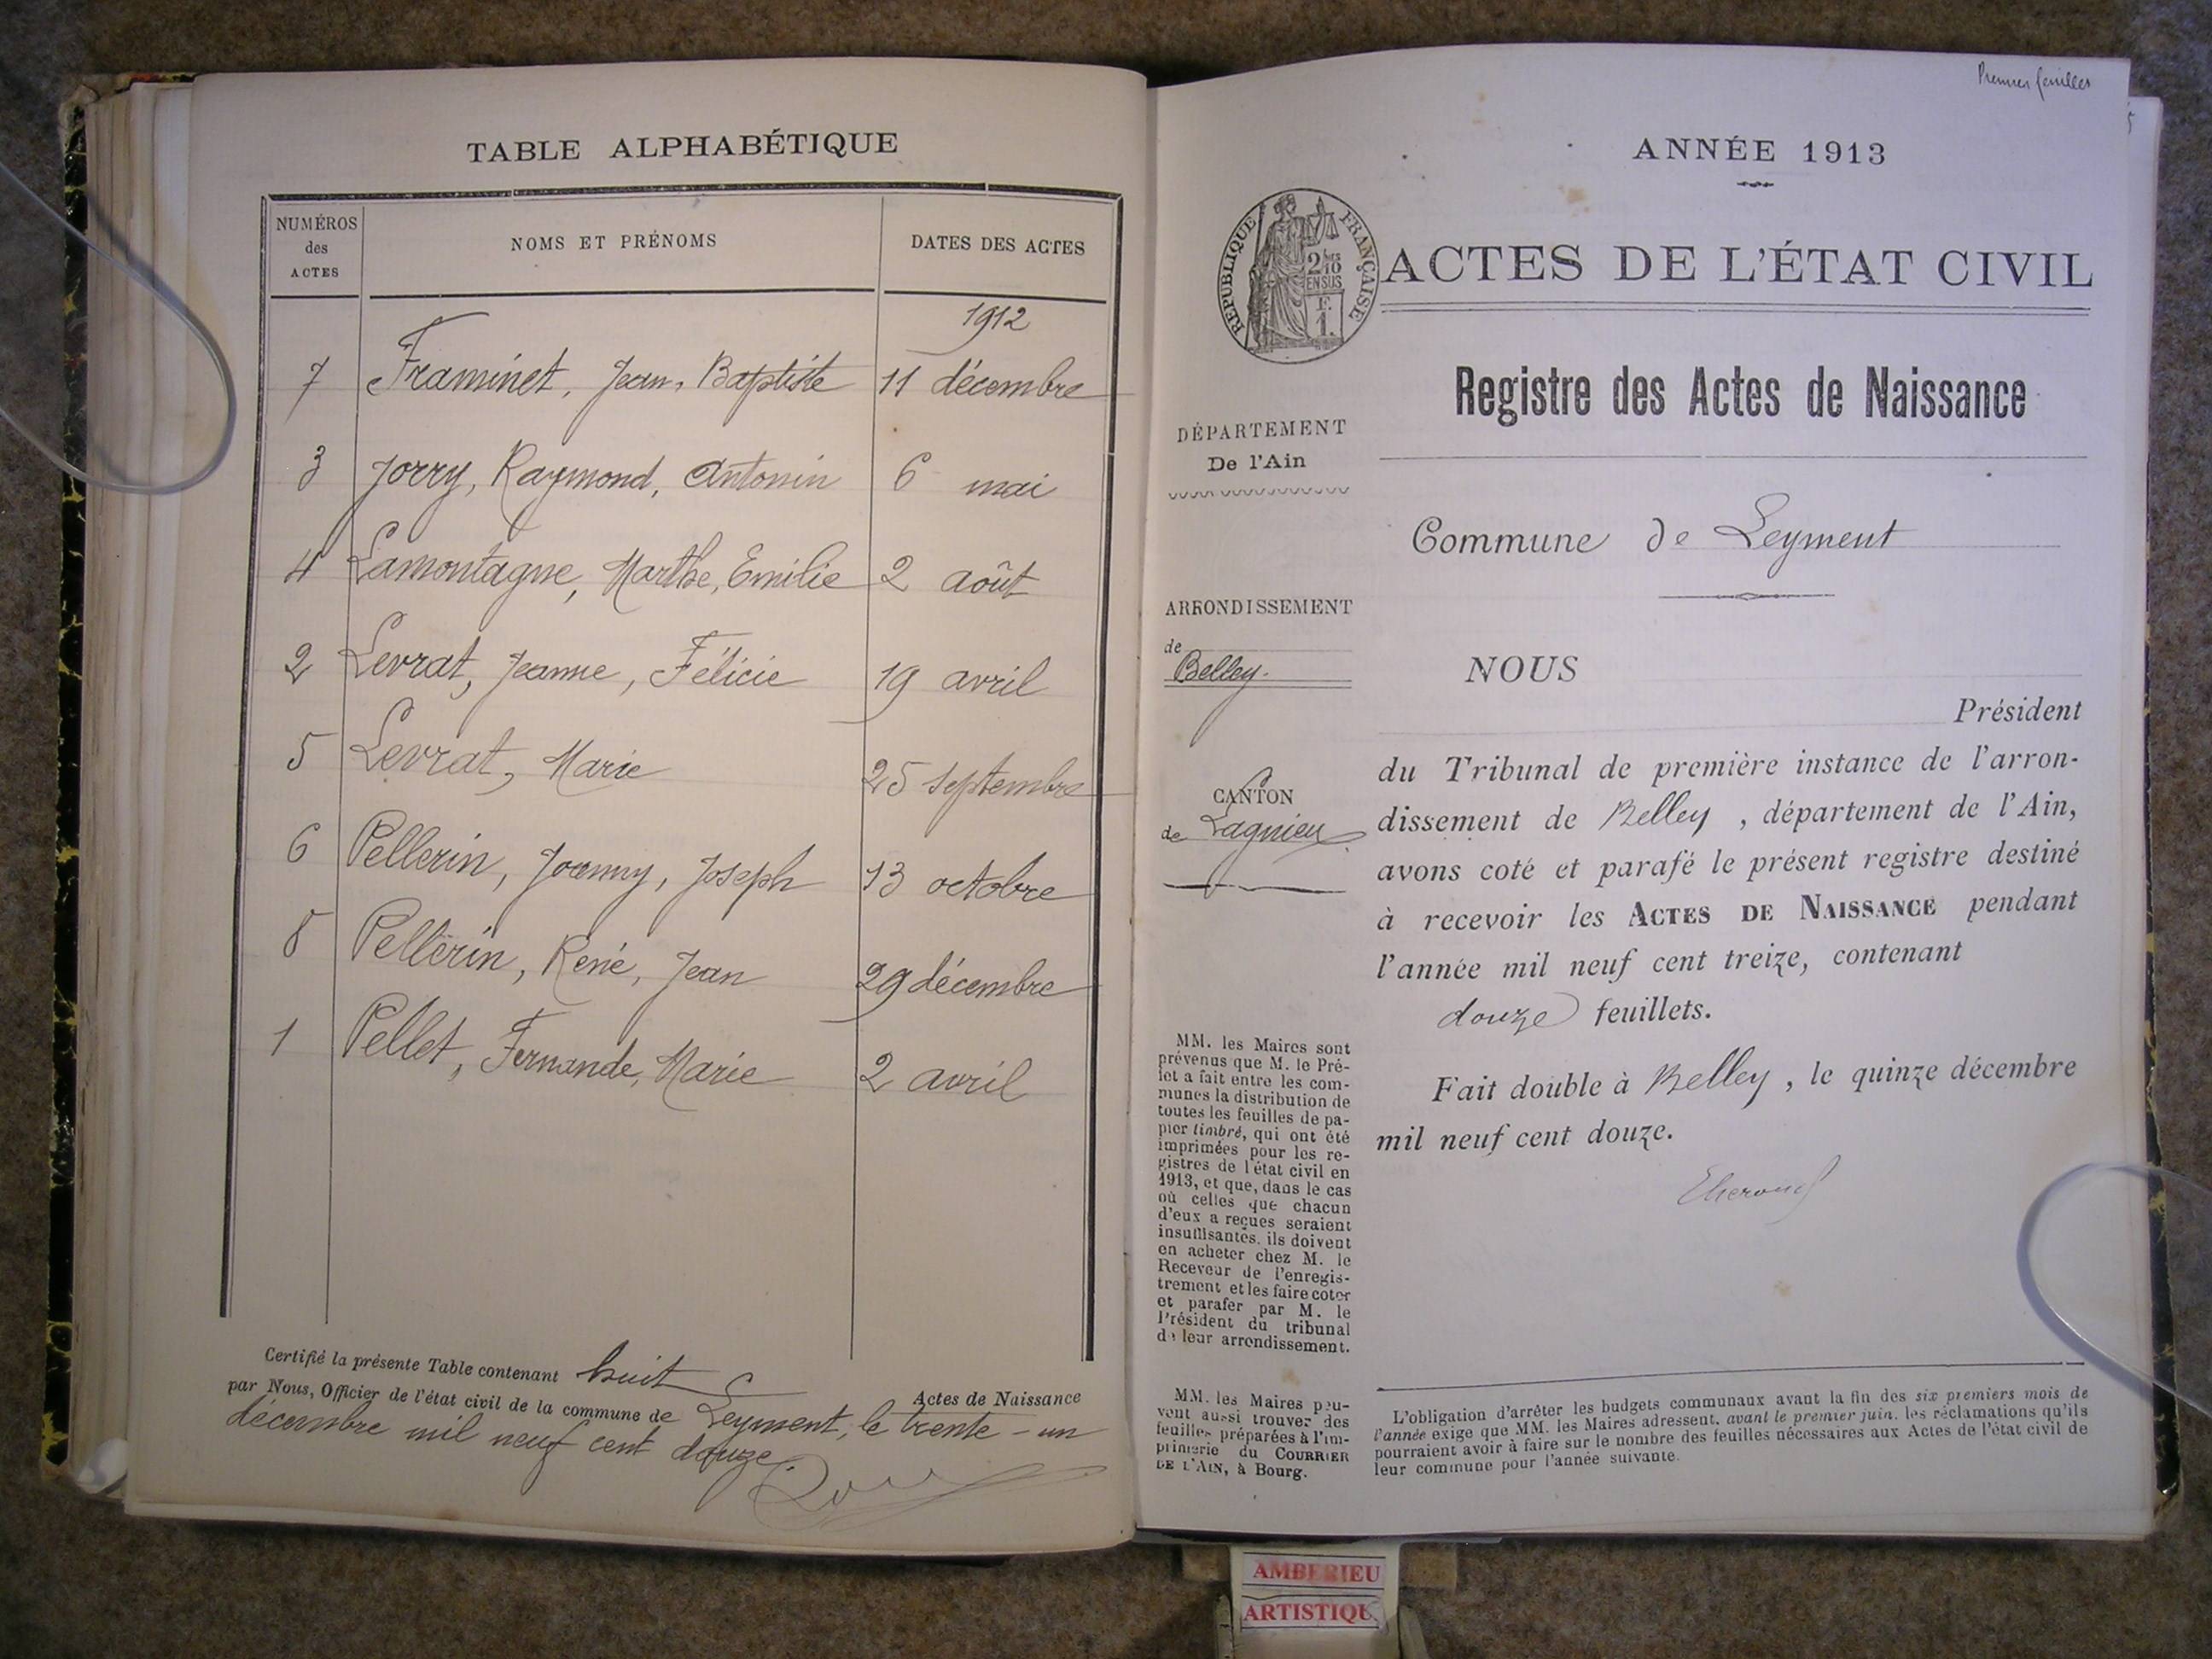 TABLE ALPHABÉTIQUE
NUMÉROS
des
ACTES
NOMS ET PRÉNOMS
DATES DES ACTES
1912
7 Framinet, Jean, Baptiste 11 décembre
3 Jorry, Raymond, Antonin 6 mai
4 Lamontagne, Marthe, Emilie 2 août
2 Levrat, Jeanne, Félicie 19 avril
5 Levrat, Marie 25 septembre
6 Pellerin, Joanny, Joseph 13 octobre
8 Pellerin, René, Jean 29 décembre
1 Pellet, Fernande, Marie 2 avril
Certifié la présente Table contenant huit Actes de Naissance
par Nous, Officier de l'état civil de la commune de Leyment, le trente-un
décembre mil neuf cent douze.
Premier feuillet
ANNÉE 1913
RÉPUBLIQUE FRANÇAISE
2/10
EN SUS
F.
1.
ACTES DE L'ÉTAT CIVIL
Registre des Actes de Naissance
DÉPARTEMENT
De l'Ain
Commune de Leyment
ARRONDISSEMENT
de
Belley.
CANTON
de Lagnieu
NOUS
Président
du Tribunal de première instance de l'arron-
dissement de Belley, département de l'Ain,
avons coté et parafé le présent registre destiné
à recevoir les ACTES DE NAISSANCE pendant
l'année mil neuf cent treize, contenant
douze feuillets.
Fait double à Belley, le quinze décembre
mil neuf cent douze.
MM. les Maires sont
prévenus que M. le Pré-
fet a fait entre les com-
munes la distribution de
toutes les feuilles de pa-
pier timbré, qui ont été
imprimées pour les re-
gistres de l'état civil en
1913, et que, dans le cas
où celles que chacun
d'eux a reçues seraient
insuffisantes, ils doivent
en acheter chez M. le
Receveur de l'enregis-
trement et les faire coter
et parafer par M. le
Président du tribunal
de leur arrondissement.
MM. les Maires peu-
vent aussi trouver des
feuilles préparées à l'im-
primerie du COURRIER
DE L'AIN, à Bourg.
L'obligation d'arrêter les budgets communaux avant la fin des six premiers mois de
l'année exige que MM. les Maires adressent, avant le premier juin, les réclamations qu'ils
pourraient avoir à faire sur le nombre des feuilles nécessaires aux Actes de l'état civil de
leur commune pour l'année suivante.
AMBERIEU
ARTISTIQU